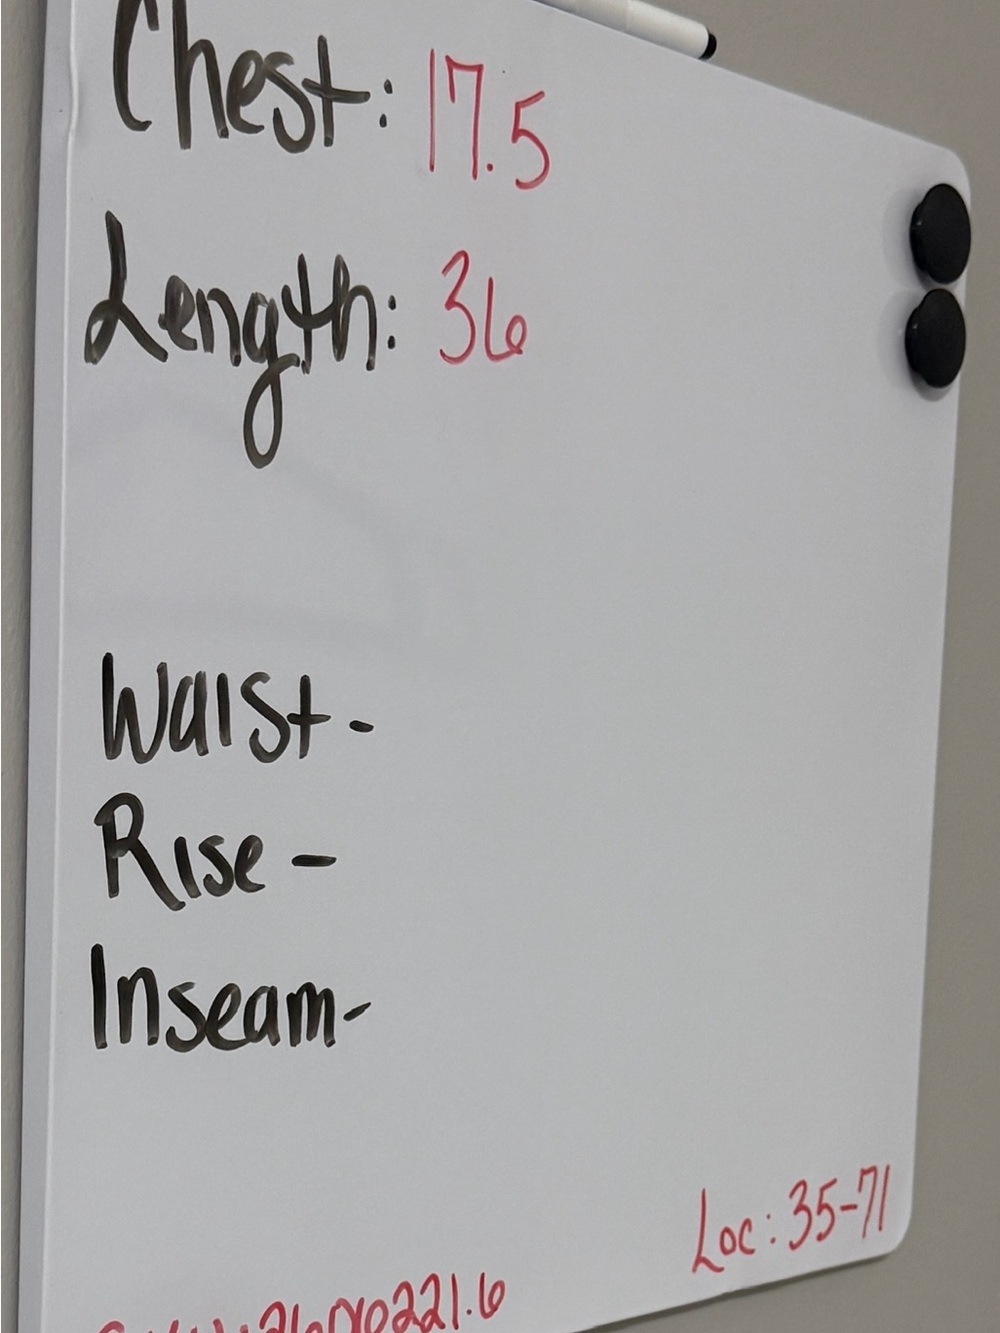 Chest: 17.5
Length: 36
Waist-
Rise-
Inseam-
Loc: 35-71